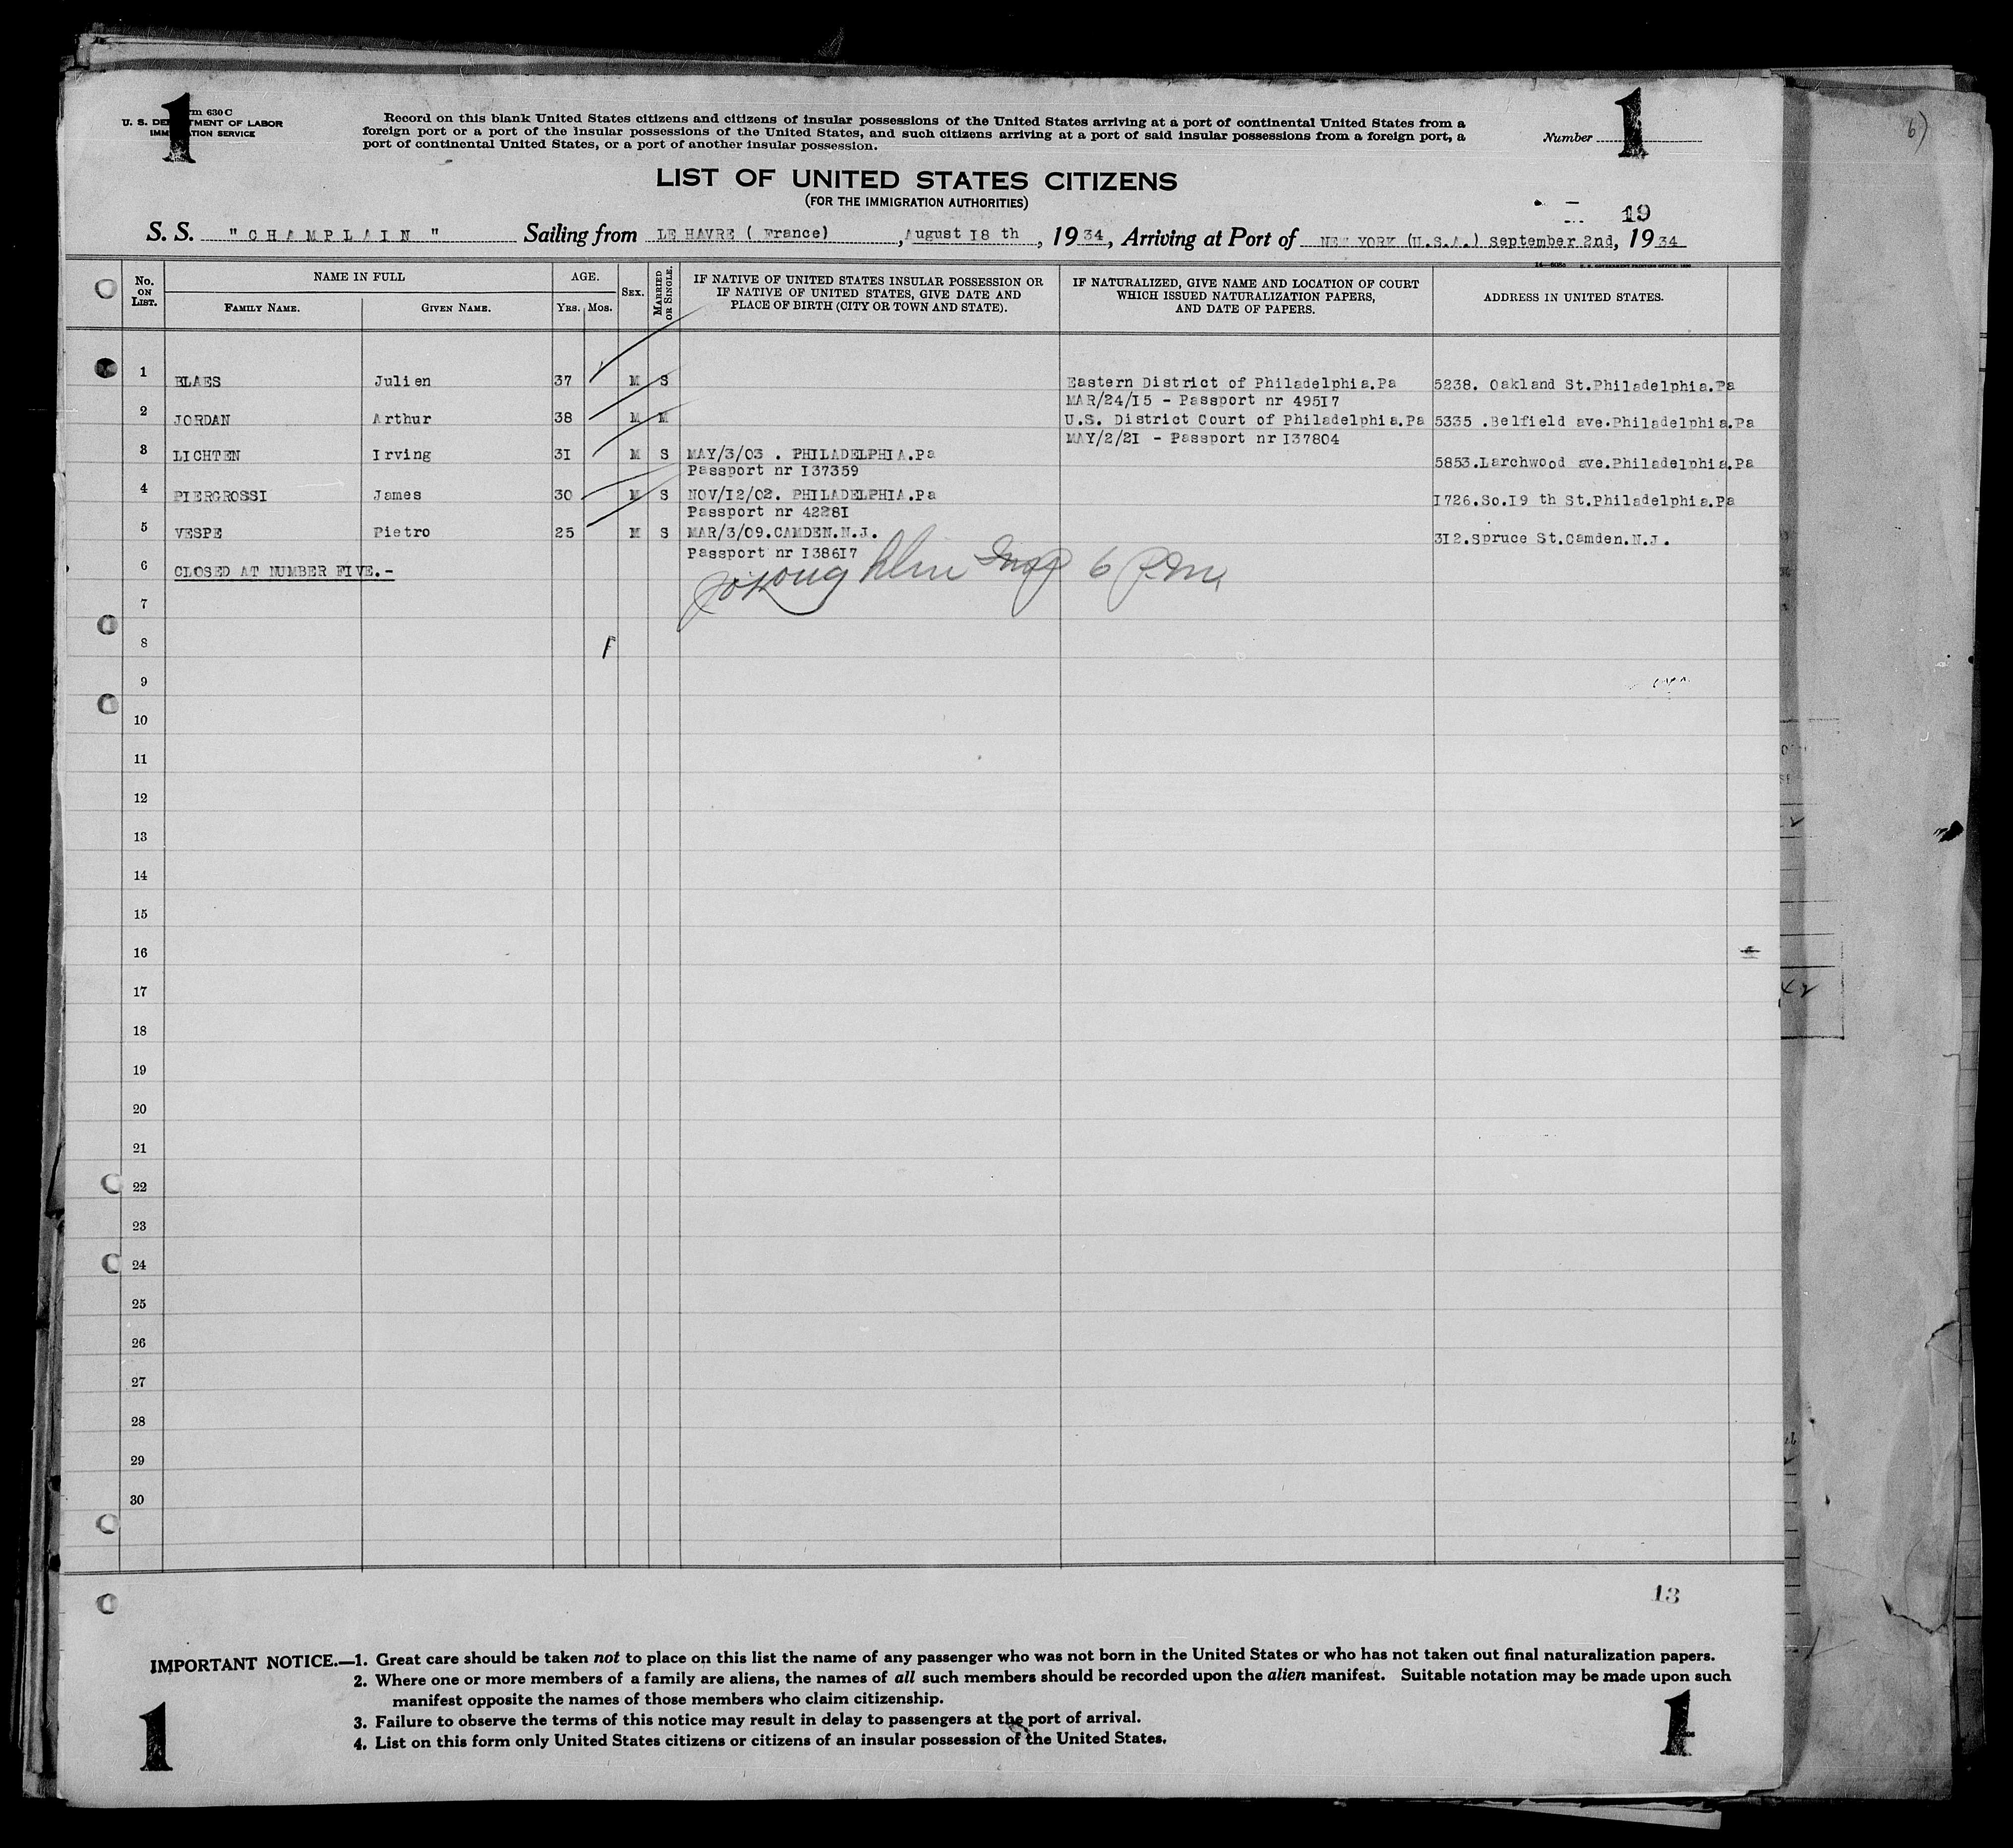 1 1
Form 630 C
U. S. DEPARTMENT OF LABOR
IMMIGRATION SERVICE
Record on this blank United States citizens and citizens of insular possessions of the United States arriving at a port of continental United States from a
foreign port or a port of the insular possessions of the United States, and such citizens arriving at a port of said insular possessions from a foreign port, a
port of continental United States, or a port of another insular possession.
Number
LIST OF UNITED STATES CITIZENS
(FOR THE IMMIGRATION AUTHORITIES)
19
S. S. "CHAMPLAIN" Sailing from LE HAVRE ( France) , August I8 th , 1934, Arriving at Port of NEW YORK (U.S.A.) September 2nd, 1934
No. ON LIST. NAME IN FULL AGE. SEX. MARRIED OR SINGLE. IF NATIVE OF UNITED STATES INSULAR POSSESSION OR IF NATIVE OF UNITED STATES, GIVE DATE AND PLACE OF BIRTH (CITY OR TOWN AND STATE). IF NATURALIZED, GIVE NAME AND LOCATION OF COURT WHICH ISSUED NATURALIZATION PAPERS, AND DATE OF PAPERS. ADDRESS IN UNITED STATES.
FAMILY NAME. GIVEN NAME. YRS. MOS.
1 BLAES Julien 37 M S Eastern District of Philadelphia.Pa 5238. Oakland St.Philadelphia.Pa
MAR/24/I5 - Passport nr 495I7
2 JORDAN Arthur 38 M M U.S. District Court of Philadelphia.Pa 5335 .Belfield ave.Philadelphia.Pa
MAY/2/2I - Passport nr I37804
3 LICHTEN Irving 3I M S MAY/3/03 . PHILADELPHIA.Pa 5853.Larchwood ave.Philadelphia.Pa
Passport nr I37359
4 PIERGROSSI James 30 M S NOV/I2/02. PHILADELPHIA.Pa I726.So.I9 th St.Philadelphia.Pa
Passport nr 4228I
5 VESPE Pietro 25 M S MAR/3/09.CAMDEN.N.J. 3I2.Spruce St.Camden.N.J.
Passport nr I386I7
6 CLOSED AT NUMBER FIVE.-
Insp 6 P.M.
7
8
9
10
11
12
13
14
15
16
17
18
19
20
21
22
23
24
25
26
27
28
29
30
13
IMPORTANT NOTICE.—1. Great care should be taken not to place on this list the name of any passenger who was not born in the United States or who has not taken out final naturalization papers.
2. Where one or more members of a family are aliens, the names of all such members should be recorded upon the alien manifest. Suitable notation may be made upon such
manifest opposite the names of those members who claim citizenship.
3. Failure to observe the terms of this notice may result in delay to passengers at the port of arrival.
4. List on this form only United States citizens or citizens of an insular possession of the United States.
1 1